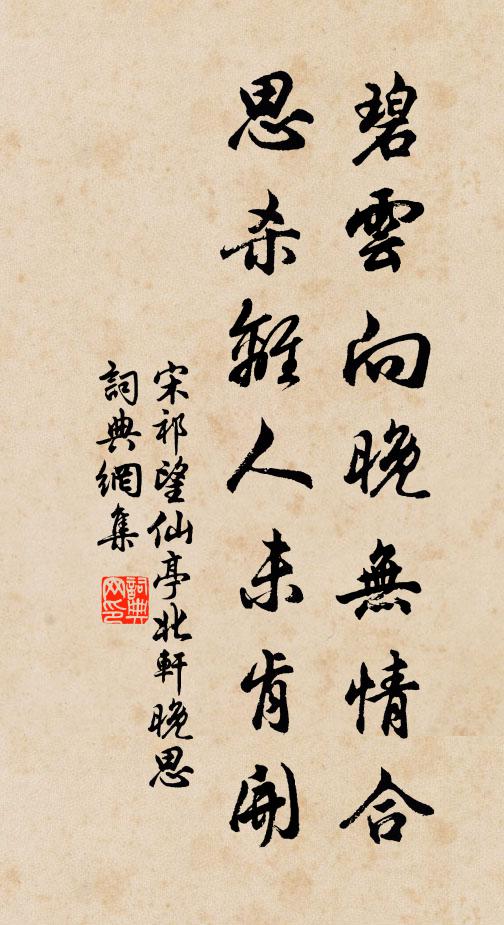 碧雲向晚無情合
思杀離人未肯開
宋祁望仙亭北軒晚思
詞典網集
詞典
网印